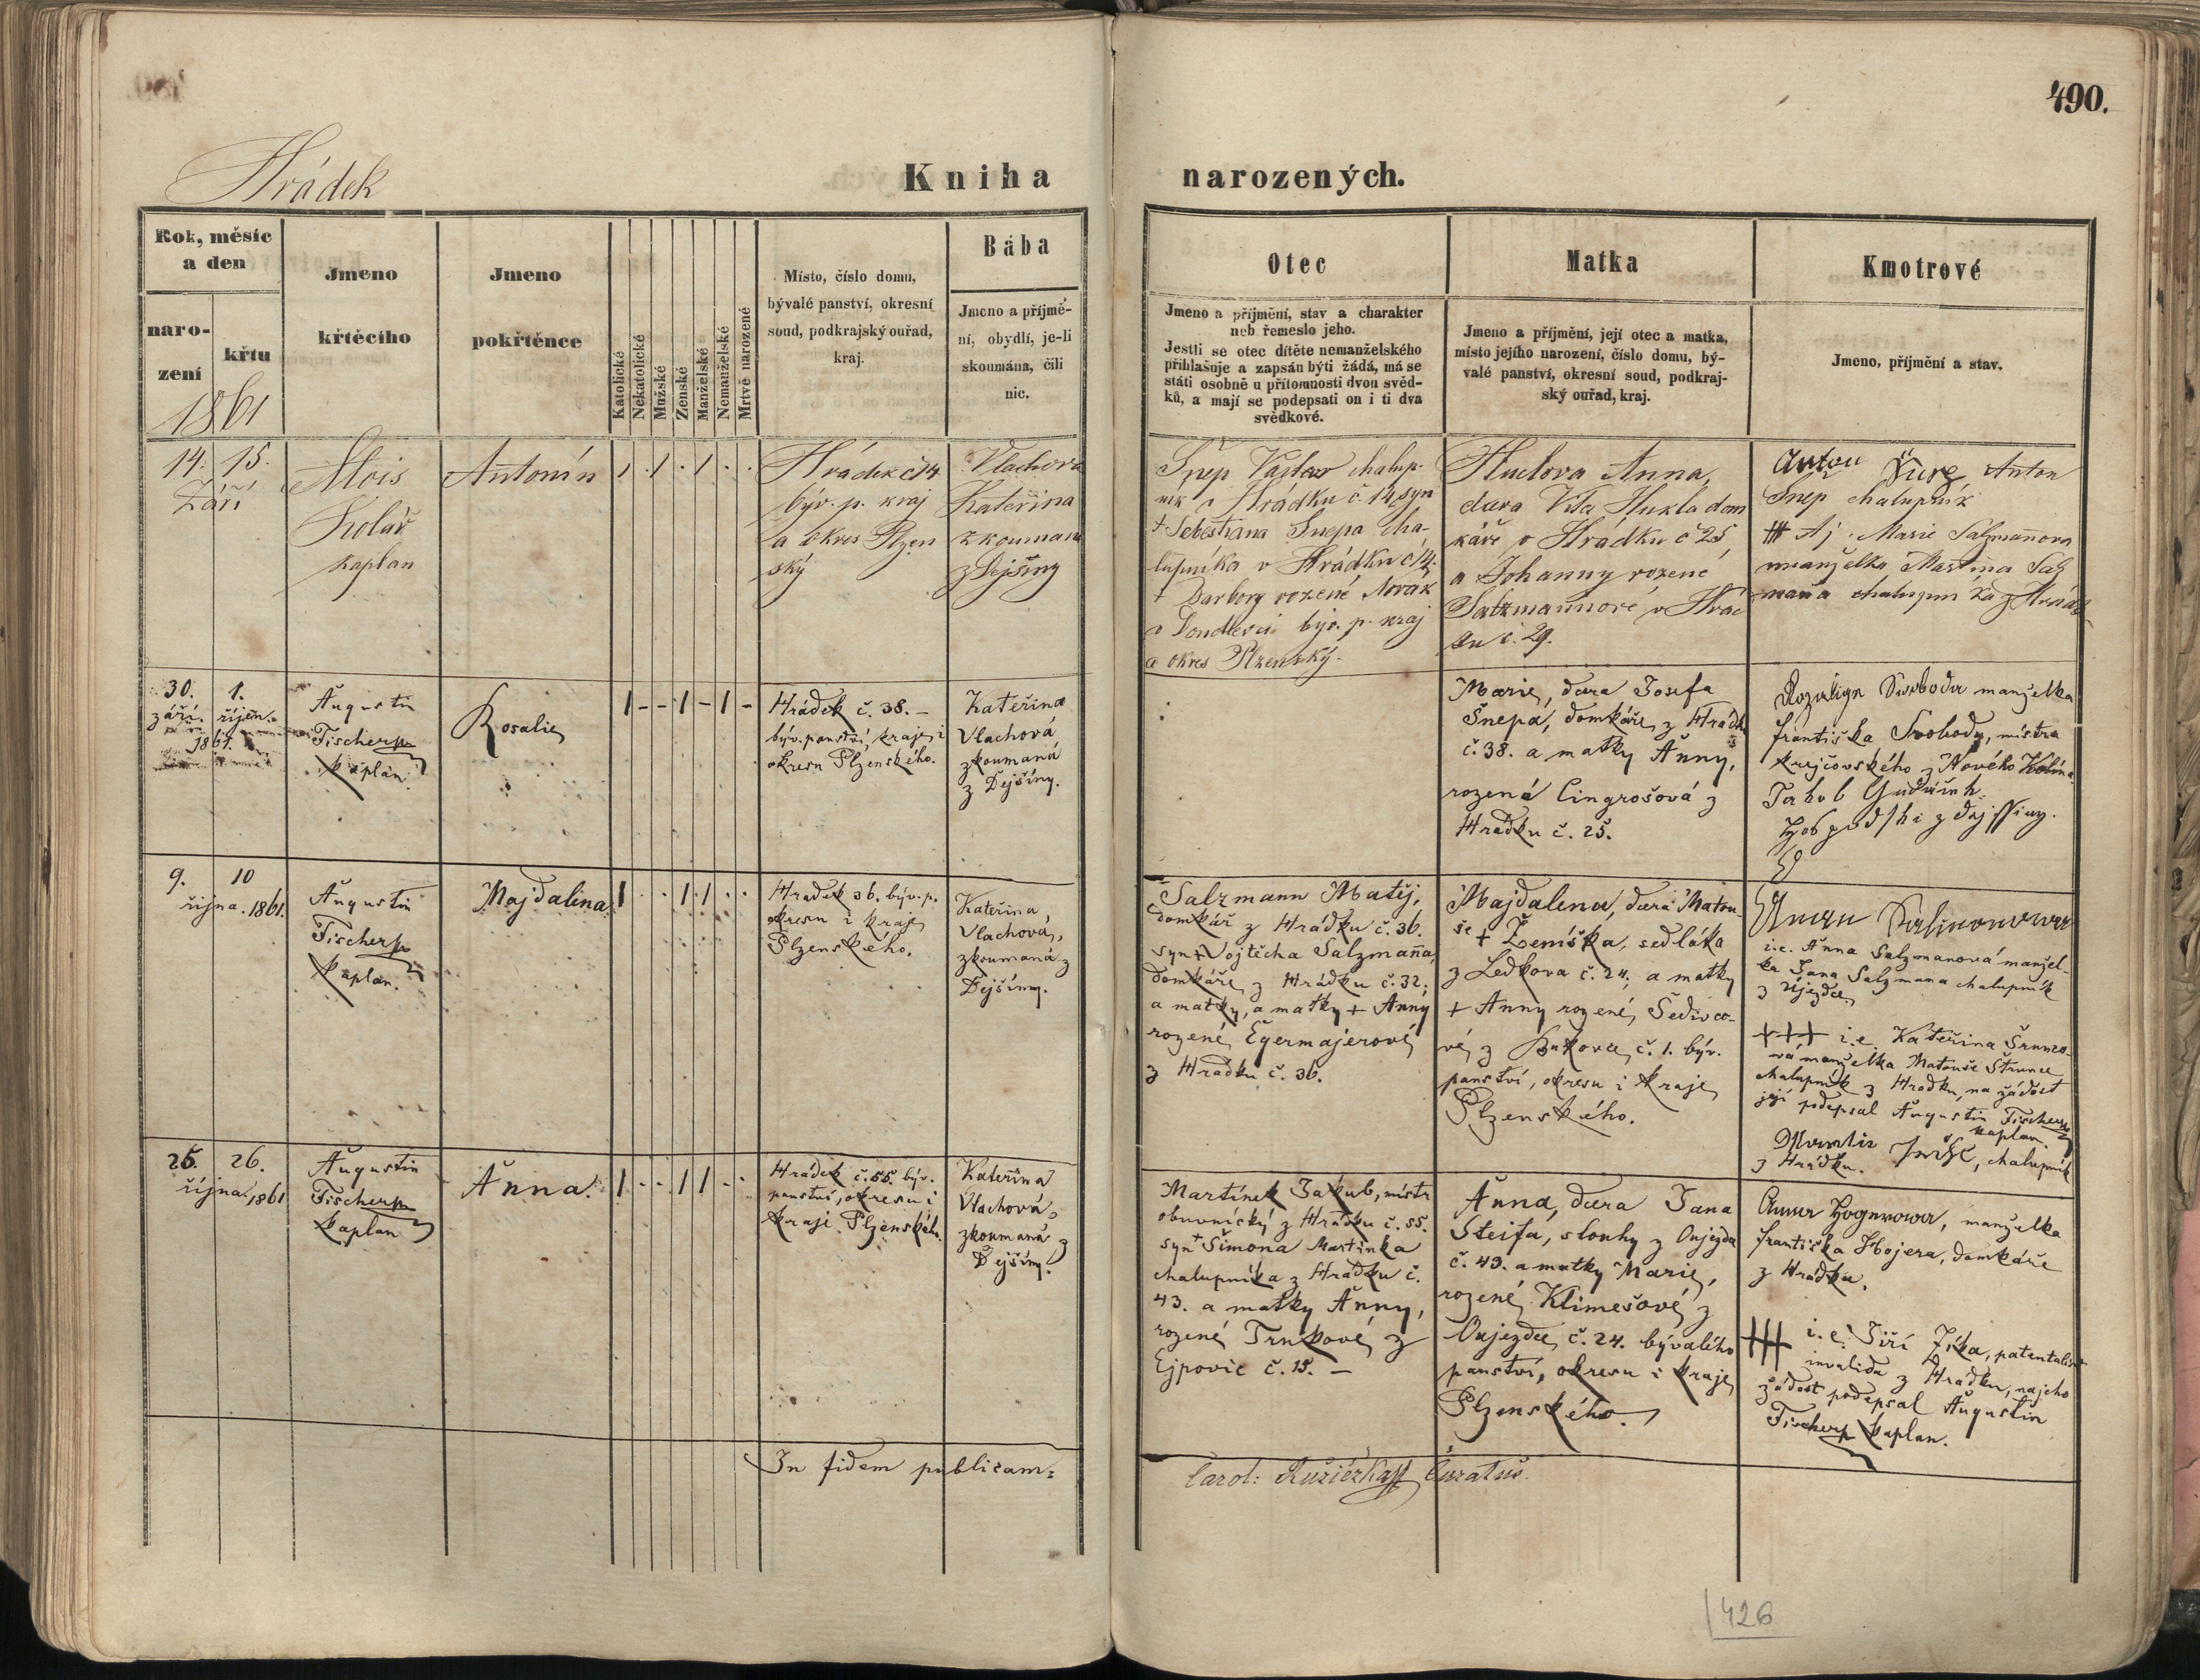 490.
Hrádek
Kniha narozených.
Rok, měsíc
a den
naro-
zení
křtu
1861
Jmeno
křtěcího
Jmeno
pokřtěnce
Katolické
Nekatolické
Mužské
Ženské
Manželské
Nemanželské
Mrtvě narozené
Místo, číslo domu,
bývalé panství, okresní
soud, podkrajský ouřad,
kraj.
Bába
Jmeno a příjmě-
ní, obydlí, je-li
skoumána, čili
nic.
Otec
Jmeno a příjmění, stav a charakter
neb řemeslo jeho.
Jestli se otec dítěte nemanželského
přihlašuje a zapsán býti žádá, má se
státi osobně u přítomnosti dvou svěd-
ků, a mají se podepsati on i ti dva
svědkové.
Matka
Jmeno a příjmění, její otec a matka,
místo jejího narození, číslo domu, bý-
valé panství, okresní soud, podkraj-
ský ouřad, kraj.
Kmotrové
Jmeno, příjmění a stav.
14. 15.
Září
Alois
Kolář
kaplan
Antonín
1 . 1 . 1 . .
Hrádek č 14
býv. p. kraj
a okres Plzen
ský
Vlachova
Kateřina
zkoumana
z Dejšiny
Šnep Vaslav chalup-
nik v Hrádku č. 14 syn
† Sebestiana Snepa cha-
lupníka v Hrádku č 14.
† Barbory rozené Novák
býv. p. kraj
a okres Plzenský.
Anna,
dcera Víta Hukla dom
káře v Hrádku č 25
a Johanny rozené
Salzmannové v Hrád
ku č. 29.
Anton
Anton
Snep chalupník
+++ Aj. Marie Salzmanova
manželka Martina Salz
mana chalupníka z Hrádk
30. 1.
září. říjen.
1861.
Augustin
Fischer
kaplan.
Rosalie
1 - - 1 - 1 -
Hrádek č. 38. —
býv. panství, kraje i
okresu Plzenského.
Kateřina
Vlachová
zkoumaná
z Dejšiny.
Marie, dcera Josefa
Šnepa, domkáře z Hrádk
č. 38. a matky Anny,
rozená Cingrošová z
Hrádku č. 25.
Rozaliga Swoboda manželka
františka Svobody, mistra
krejčovského z Nového Kolína
Jakub
z
9. 10
října. 1861.
Augustin
Fischer
kaplan.
Majdalena
1 . . 1 1 . .
Hrádek 36. býv. p.
okresu i kraje
Plzenského.
Kateřina,
Vlachová,
zkoumaná z
Dejšiny.
Salzmann Matěj,
domkář z Hrádku č. 36.
syn † Vojtěcha Salzmana,
domkáře z Hrádku č. 32;
a matky, a matky + Anny
rozené Egermajerové
z Hrádku č. 36.
Majdalena, dcera Matou-
še + Žemíška, sedláka
z Ledkova č. 24, a matky
+ Anny rozené Šedivco-
vé z Bukovce č. 1. býv.
panství, okresu i kraje
Plzenského.
i.e. Anna Salzmanová manžel-
ka Jana Salzmana chalupník
z Újezdce
+++ i.e. Kateřina Šrunco-
vá manželka Matouše Štrunce
chalupník z Hrádku, na žádost
její podepsal Augustin Fischer
kaplan.
chalupník
z Hrádku.
25. 26.
října 1861
Augustin
Fischer
kaplan
Anna.
1 . . 1 1 . .
Hrádek č. 55. býv.
panství, okresu i
kraje Plzenskéh.
Kateřina
Vlachová,
zkoumaná z
Dejšiny.
Martínek Jakub, mistr
obuvnický z Hrádku č. 55.
syn + Šimona Martinka
chalupníka z Hrádku č.
43. a matky Anny,
rozené Trnkové z
Ejpovic č. 15. —
Anna, dcera Jana
Steifa, slouhy z Oujezda
č. 49. a matky Marie,
rozené Klimešové z
Oujezdce č. 24. bývalého
panství, okresu i kraje
Plzenského.
Anna Hognerowa, manželka
františka Hojera, domkáře
z Hrádku.
+++ i.e. Jiří Zíka, patentalist
invalida z Hrádku, na jeho
žádost podepsal Augustin
Fischer kaplan.
In fidem publicam:
Carol: Růžiczka Curatus.
426